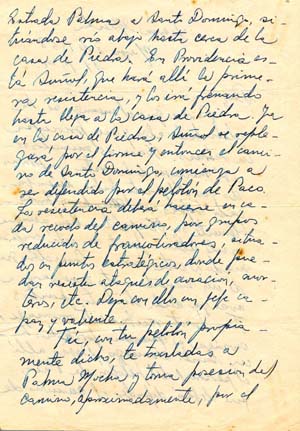 Estrada Palma a Santo Domingo, si-
tuándose río abajo hasta cerca de la
casa de Piedra. En Providencia es-
tá Suñol, que hará allí la prime-
ra resistencia, y los irá frenando
hasta llegar a la casa de Piedra. Ya
en la casa de Piedra, Suñol se reple-
gará, por el firme y entonces el cami-
no de Santo Domingo, comienza a
ser defendido por el pelotón de Paco.
La resistencia deberá hacerse en ca-
da recodo del camino, por grupos
reducidos de francotiradores, situa-
dos en puntos estratégicos, donde pue-
dan resistir ataques de aviación, mor-
teros, etc. Deja con ellos un jefe ca-
paz y valiente.
Tú, con tu pelotón propia-
mente dicho, te trasladas a
Palma Mocha y toma posesión del
camino, aproximadamente, por el